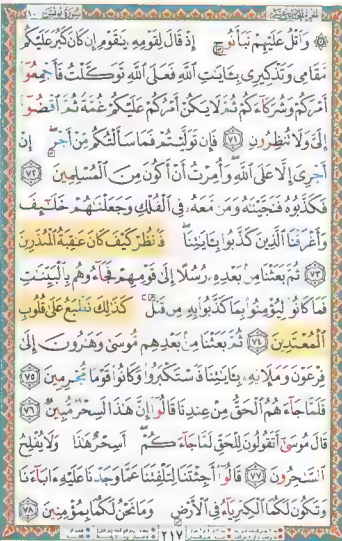 الجزء الحادي عشر سورة يونس ١٠
۞ وَٱتْلُ عَلَيْهِمْ نَبَأَ نُوحٍ إِذْ قَالَ لِقَوْمِهِۦ يَٰقَوْمِ إِن كَانَ كَبُرَ عَلَيْكُم
مَّقَامِى وَتَذْكِيرِى بِـَٔايَٰتِ ٱللَّهِ فَعَلَى ٱللَّهِ تَوَكَّلْتُ فَأَجْمِعُوٓا۟
أَمْرَكُمْ وَشُرَكَآءَكُمْ ثُمَّ لَا يَكُنْ أَمْرُكُمْ عَلَيْكُمْ غُمَّةً ثُمَّ ٱقْضُوٓا۟
إِلَىَّ وَلَا تُنظِرُونِ ٧١ فَإِن تَوَلَّيْتُمْ فَمَا سَأَلْتُكُم مِّنْ أَجْرٍ ۖ إِنْ
أَجْرِىَ إِلَّا عَلَى ٱللَّهِ ۖ وَأُمِرْتُ أَنْ أَكُونَ مِنَ ٱلْمُسْلِمِينَ ٧٢
فَكَذَّبُوهُ فَنَجَّيْنَٰهُ وَمَن مَّعَهُۥ فِى ٱلْفُلْكِ وَجَعَلْنَٰهُمْ خَلَٰٓئِفَ
وَأَغْرَقْنَا ٱلَّذِينَ كَذَّبُوا۟ بِـَٔايَٰتِنَا ۖ فَٱنظُرْ كَيْفَ كَانَ عَٰقِبَةُ ٱلْمُنذَرِينَ
٧٣ ثُمَّ بَعَثْنَا مِنۢ بَعْدِهِۦ رُسُلًا إِلَىٰ قَوْمِهِمْ فَجَآءُوهُم بِٱلْبَيِّنَٰتِ
فَمَا كَانُوا۟ لِيُؤْمِنُوا۟ بِمَا كَذَّبُوا۟ بِهِۦ مِن قَبْلُ ۚ كَذَٰلِكَ نَطْبَعُ عَلَىٰ قُلُوبِ
ٱلْمُعْتَدِينَ ٧٤ ثُمَّ بَعَثْنَا مِنۢ بَعْدِهِم مُّوسَىٰ وَهَٰرُونَ إِلَىٰ
فِرْعَوْنَ وَمَلَإِي۟هِۦ بِـَٔايَٰتِنَا فَٱسْتَكْبَرُوا۟ وَكَانُوا۟ قَوْمًا مُّجْرِمِينَ ٧٥
فَلَمَّا جَآءَهُمُ ٱلْحَقُّ مِنْ عِندِنَا قَالُوٓا۟ إِنَّ هَٰذَا لَسِحْرٌ مُّبِينٌ ٧٦
قَالَ مُوسَىٰٓ أَتَقُولُونَ لِلْحَقِّ لَمَّا جَآءَكُمْ ۖ أَسِحْرٌ هَٰذَا وَلَا يُفْلِحُ
ٱلسَّٰحِرُونَ ٧٧ قَالُوٓا۟ أَجِئْتَنَا لِتَلْفِتَنَا عَمَّا وَجَدْنَا عَلَيْهِ ءَابَآءَنَا
وَتَكُونَ لَكُمَا ٱلْكِبْرِيَآءُ فِى ٱلْأَرْضِ وَمَا نَحْنُ لَكُمَا بِمُؤْمِنِينَ ٧٨
٢١٧